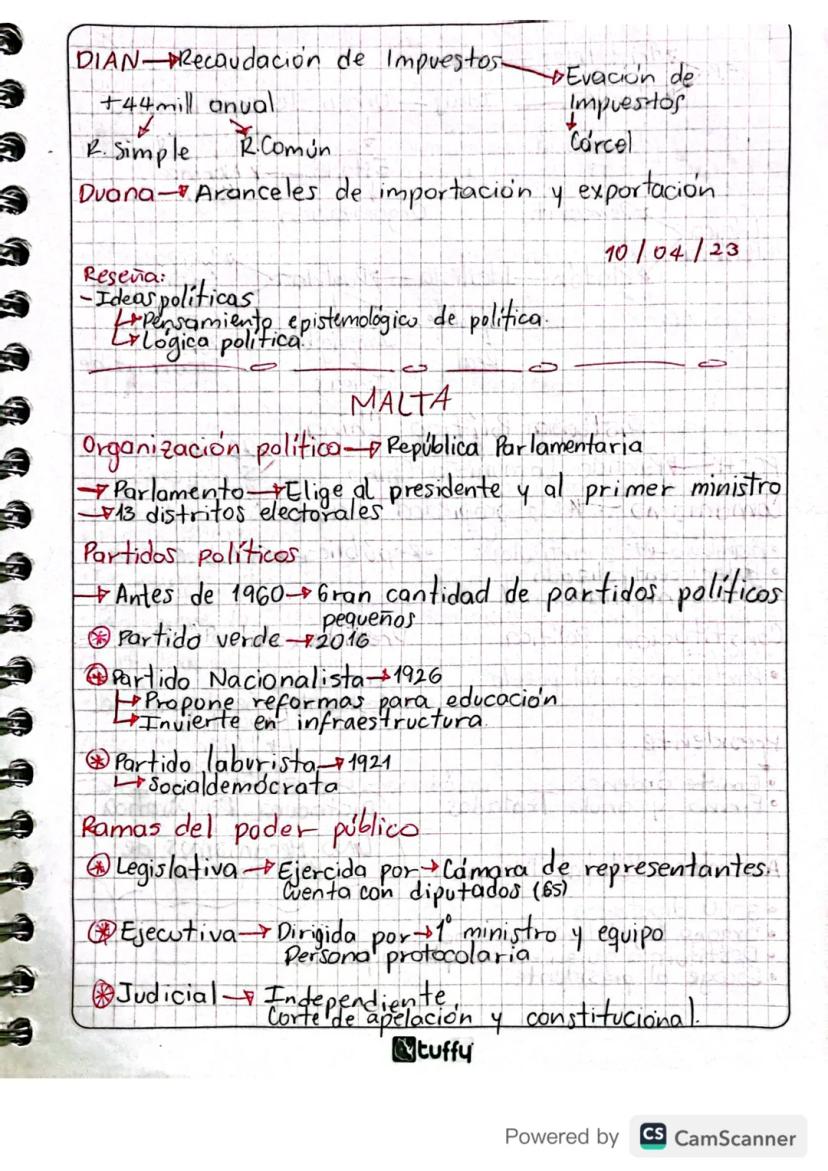 DIAN→Recaudación de Impuestos→Evación de
Impuestos
+44mill anual
↓
Cárcel
R. Simple R.Común
Duana→Aranceles de importación y exportación
10/04/23
Reseña:
-Ideas políticas
↳Pensamiento epistemológico de política.
↳Lógica política.
MALTA
Organización política→República Parlamentaria
→Parlamento→Elige al presidente y al primer ministro
→13 distritos electorales
Partidos políticos
→Antes de 1960→Gran cantidad de partidos políticos
pequeños
Partido verde→2016
Partido Nacionalista→1926
↳Propone reformas para educación
↳Invierte en infraestructura
Partido laburista→1921
↳Socialdemócrata
Ramas del poder público
Legislativa→Ejercida por→Cámara de representantes.
Cuenta con diputados (65)
Ejecutiva→Dirigida por→1° ministro y equipo
Persona protocolaria
Judicial→Independiente
Corte de apelación y constitucional.
tuffy
Powered by CS CamScanner